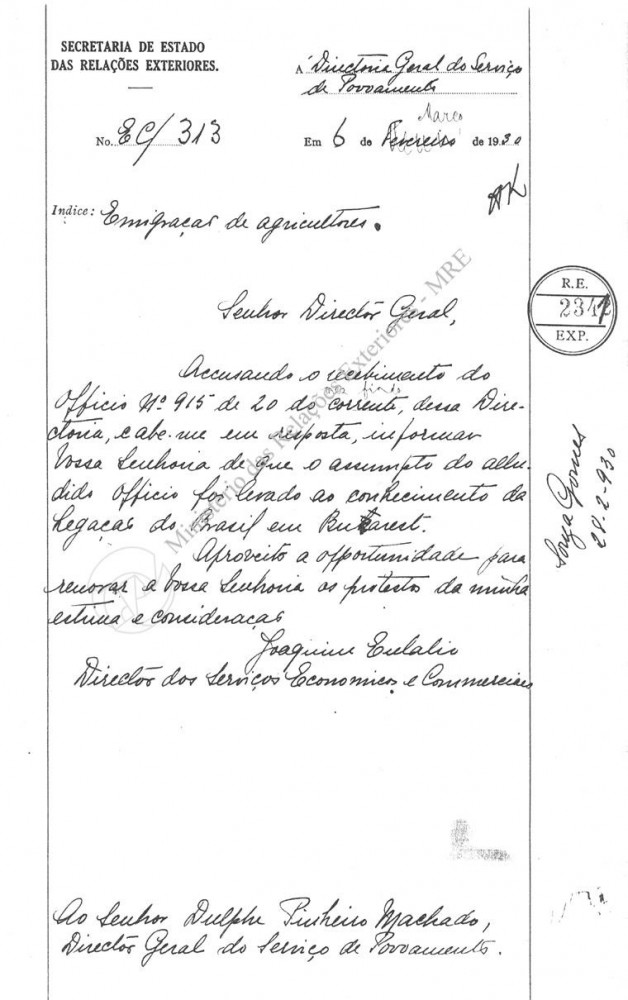 SECRETARIA DE ESTADO
DAS RELAÇÕES EXTERIORES.
Á Directoria Geral do Serviço
de Povoamento
No. EC/313
Março
Em 6 de Fevereiro de 1930
Indice: Emigração de agricultores.
Senhor Director Geral,
R.E.
234
EXP.
Accusando o recebimento do
Officio Nº 915 de 20 do corrente, dessa Dire-
ctoria, cabe-me em resposta, informar
Vossa Senhoria de que o assumpto do allu-
dido Officio foi levado ao conhecimento da
Legação do Brasil em Bucarest.
Aproveito a opportunidade para
renovar a Vossa Senhoria os protestos da minha
estima e consideração
Joaquim Eulalio
Director dos Serviços Economicos e Commerciaes
Souza Gomes
28-2-930
Ao Senhor Dulphe Pinheiro Machado,
Director Geral do Serviço de Povoamento.
Ministério das Relações Exteriores - MRE